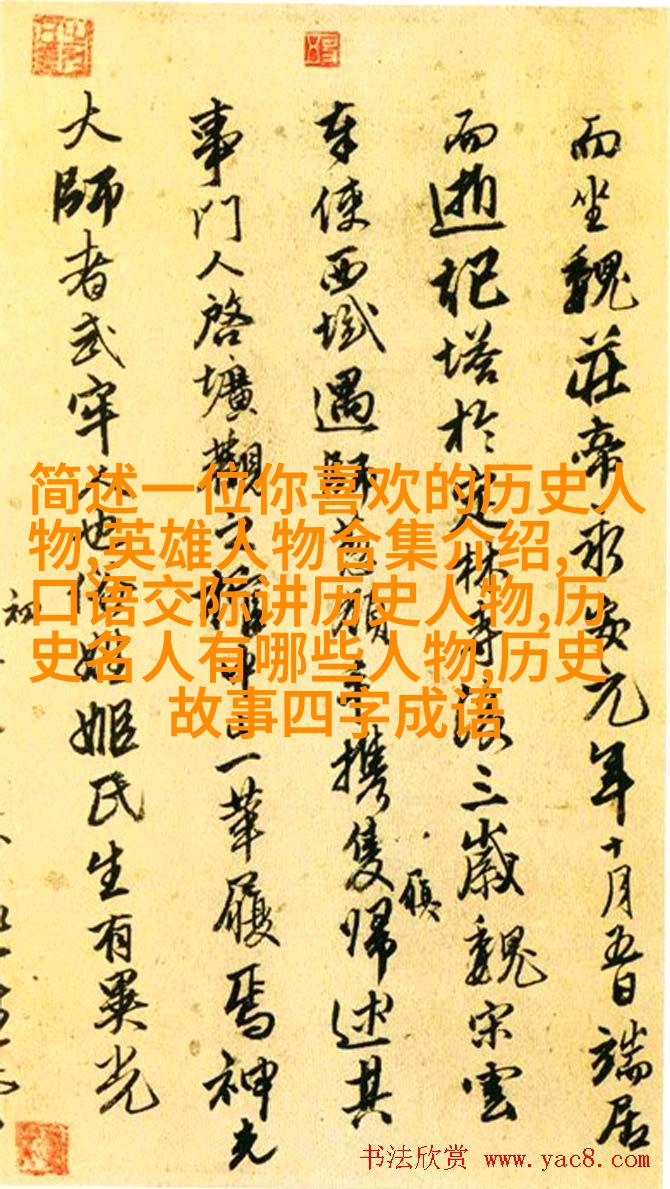 而坐魏莊帝永安元年十月五日端居
而逝祀塔於定林寺後三歲魏宋雲
奉使西域遇師葱嶺手携隻歸述其
履
事門人啓壙觀之一革履焉神光
大師者武牢人也俗姓姬氏生有異光
初
简述一位你喜欢的历史人
物,英雄人物合集介绍,
口语交际讲历史人物,历
史名人有哪些人物,历史
故事四字成语
书法欣赏 www.yac8.com